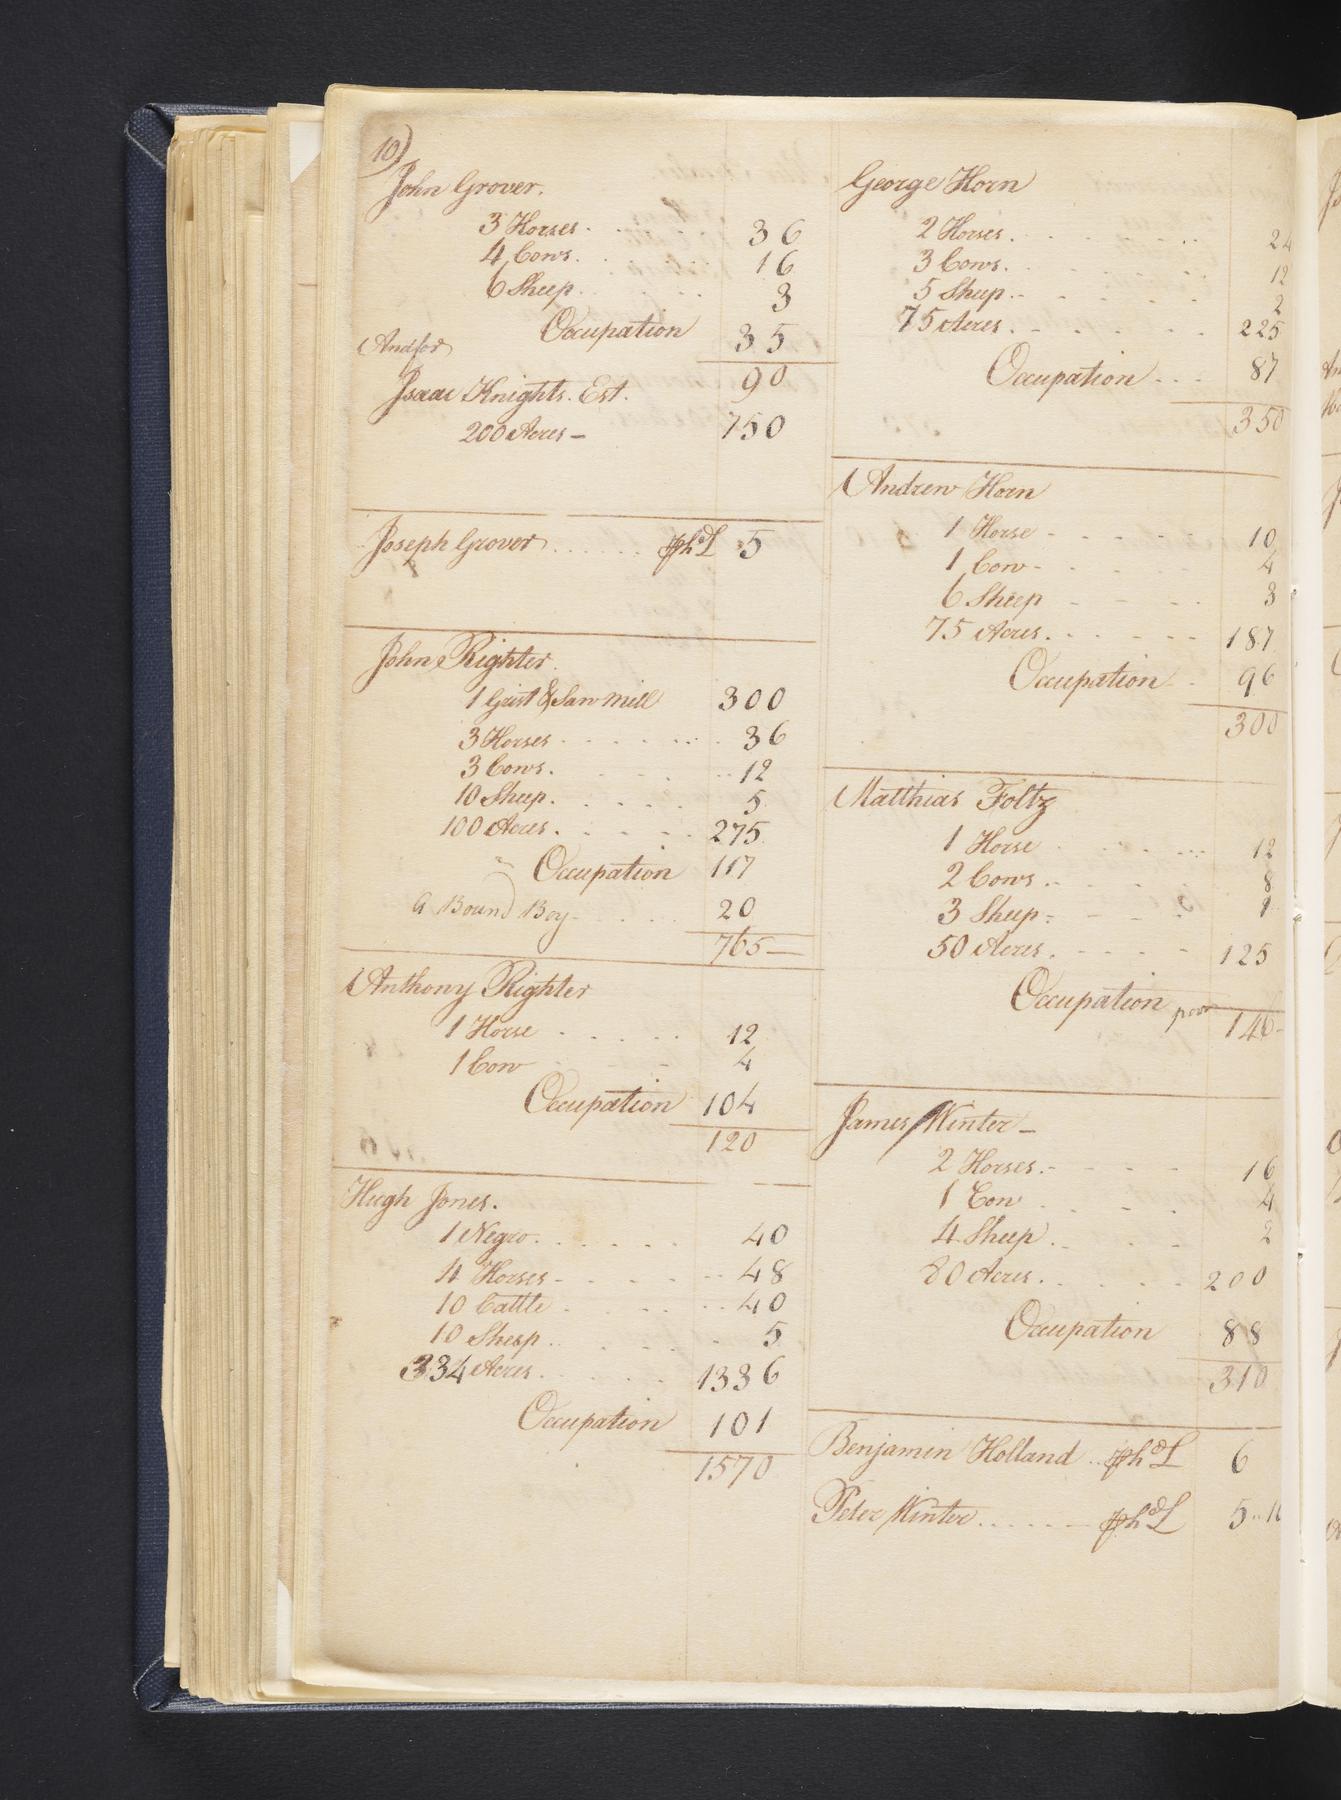 10)
John Grover.
3 Horses . . . . 36
4 Cows. . . . 16
6 Sheep. . . . 3
Occupation 35
90
And for
Isaac Knights. Est.
200 Acres — 750
Joseph Grover . . . . . . Ꝑhd£ 5
John Righter.
1 Grist & Saw mill 300
3 Horses . . . . . . 36
3 Cows. . . . . 12
10 Sheep. . . . . 5
100 Acres. . . . . 275
Occupation 117
a Bound Boy - . . . 20
765 —
Anthony Righter
1 Horse . . . . 12
1 Cow - - 4
Occupation 104
120
Hugh Jones.
1 Negro. . . . . . 40
4 Horses - . . . . 48
10 Cattle . . . . . 40
10 Sheep . . . . . 5
334 Acres. . . . . 1336
Occupation 101
1570
George Horn
2 Horses. . . . . . 24
3 Cows. . . . . . 12
5 Sheep. . - . . . 2
75 Acres . - . . . 225
Occupation . . . 87
350
Andrew Horn
1 Horse - . . . . 10
1 Cow - . . . . 4
6 Sheep - . . . 3
75 Acres. . . . . . 187
Occupation . 96
300
Matthias Foltz
1 Horse . . . . . 12
2 Cows . - . . . 8
3 Sheep - - - . 1
50 Acres. . . . - 125
Occupation poor
146-
James Winter —
2 Horses. - - - - 16
1 Cow . . . - . 4
4 Sheep . - . . - 2
80 Acres. . . . . . 200
Occupation 88
310
Benjamin Holland . . Ꝑhd£ 6
Peter Winter . . . . . — Ꝑhd£ 5 .. 10